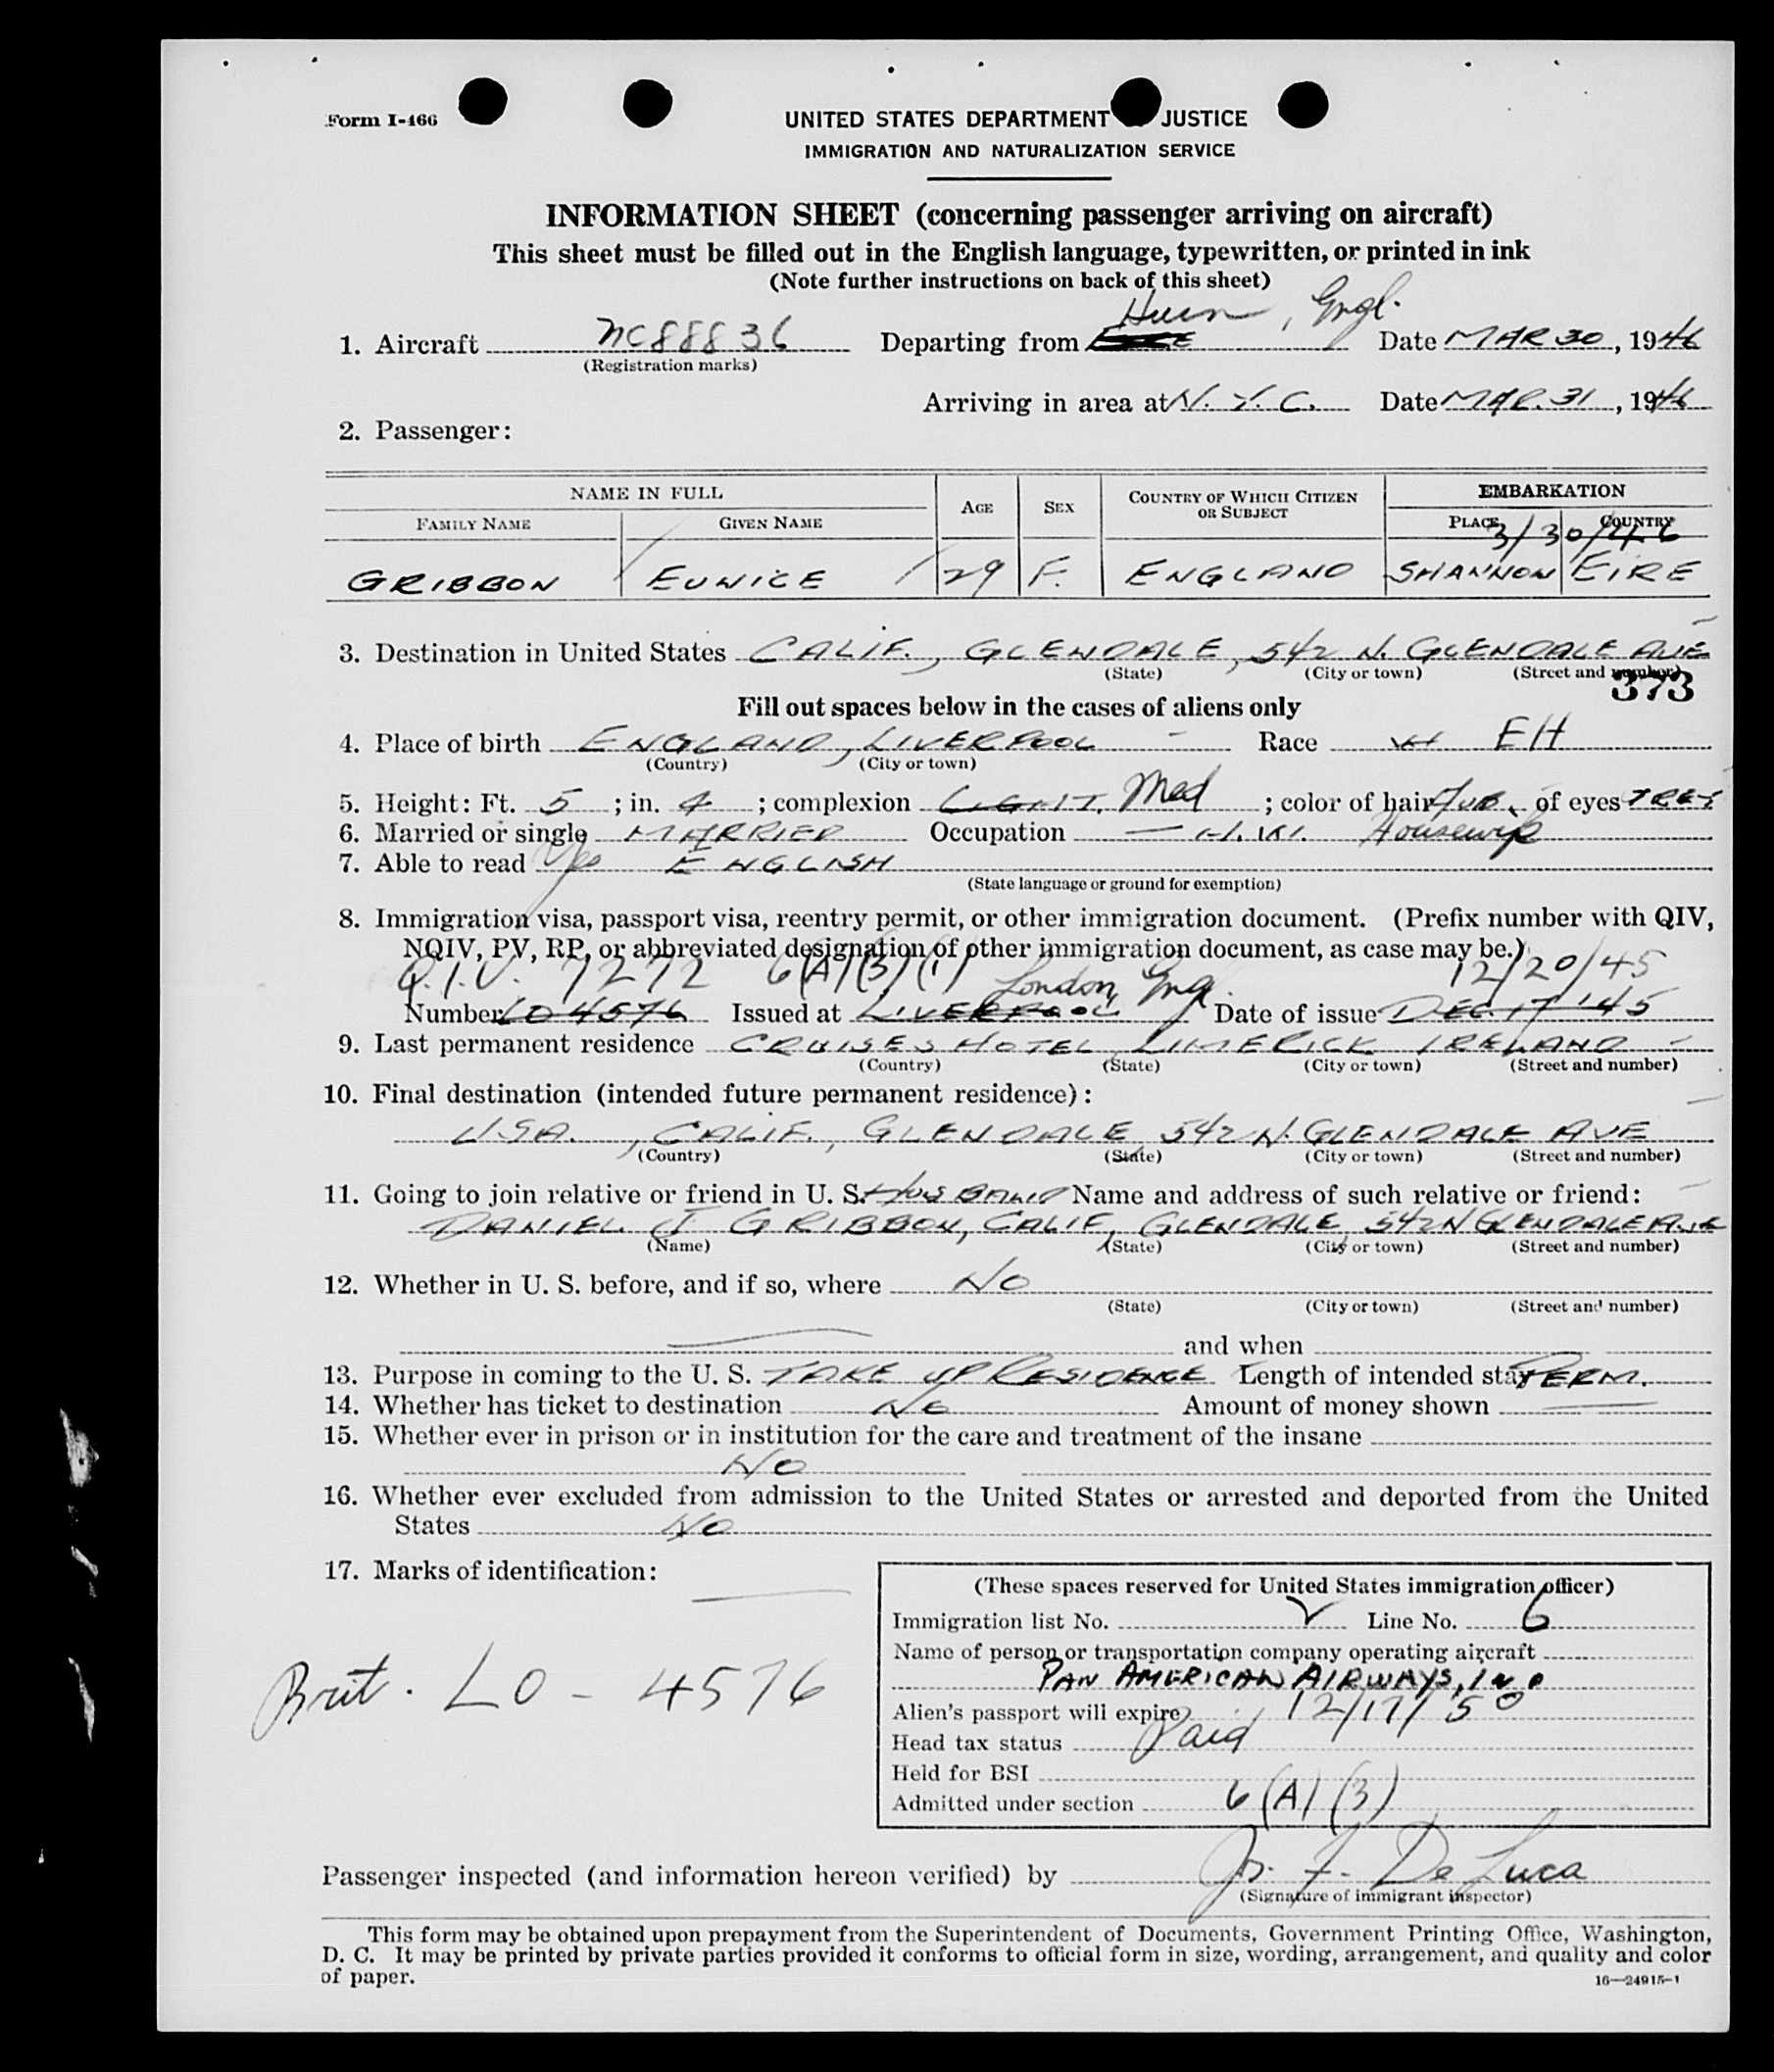 Form I-466
UNITED STATES DEPARTMENT JUSTICE
IMMIGRATION AND NATURALIZATION SERVICE
INFORMATION SHEET (concerning passenger arriving on aircraft)
This sheet must be filled out in the English language, typewritten, or printed in ink
(Note further instructions on back of this sheet)
Hurn, Engl.
1. Aircraft NC88836 Departing from Date MAR 30, 1946
(Registration marks)
Arriving in area at N.Y.C. Date MAR. 31, 1946
2. Passenger:
NAME IN FULL AGE SEX COUNTRY OF WHICH CITIZEN OR SUBJECT EMBARKATION
FAMILY NAME GIVEN NAME PLACE COUNTRY
3/30/46
GRIBBON EUNICE 29 F. ENGLAND SHANNON EIRE
3. Destination in United States CALIF., GLENDALE, 542 N. GLENDALE AVE
(State) (City or town) (Street and number)
373
Fill out spaces below in the cases of aliens only
4. Place of birth ENGLAND, LIVERPOOL Race W EH
(Country) (City or town)
5. Height: Ft. 5; in. 4; complexion LIGHT. Med; color of hair; of eyes
6. Married or single MARRIED Occupation — H.W. Housewife
7. Able to read Yes ENGLISH
(State language or ground for exemption)
8. Immigration visa, passport visa, reentry permit, or other immigration document. (Prefix number with QIV,
NQIV, PV, RP, or abbreviated designation of other immigration document, as case may be.)
Q.I.V. 7272 6(A)(3)(1) London, Engl. 12/20/45
Number LO 4576 Issued at LIVERPOOL Date of issue DEC. 17 '45
9. Last permanent residence CRUISES HOTEL LIMERICK IRELAND
(Country) (State) (City or town) (Street and number)
10. Final destination (intended future permanent residence):
USA., CALIF., GLENDALE 542 N. GLENDALE AVE
(Country) (State) (City or town) (Street and number)
11. Going to join relative or friend in U. S. HUSBAND Name and address of such relative or friend:
DANIEL J GRIBBON, CALIF, GLENDALE 542 N GLENDALE AVE
(Name) (State) (City or town) (Street and number)
12. Whether in U. S. before, and if so, where NO
(State) (City or town) (Street and number)
and when
13. Purpose in coming to the U. S. TAKE UP RESIDENCE Length of intended stay PERM.
14. Whether has ticket to destination NO Amount of money shown —
15. Whether ever in prison or in institution for the care and treatment of the insane
NO
16. Whether ever excluded from admission to the United States or arrested and deported from the United
States NO
17. Marks of identification:
Brit. LO - 4576
(These spaces reserved for United States immigration officer)
Immigration list No. Line No. 6
Name of person or transportation company operating aircraft
PAN AMERICAN AIRWAYS, INC
Alien's passport will expire 12/17/50
Head tax status Paid
Held for BSI
Admitted under section 6(A)(3)
Passenger inspected (and information hereon verified) by De Luca
(Signature of immigrant inspector)
This form may be obtained upon prepayment from the Superintendent of Documents, Government Printing Office, Washington,
D. C. It may be printed by private parties provided it conforms to official form in size, wording, arrangement, and quality and color
of paper.
16—24915-1